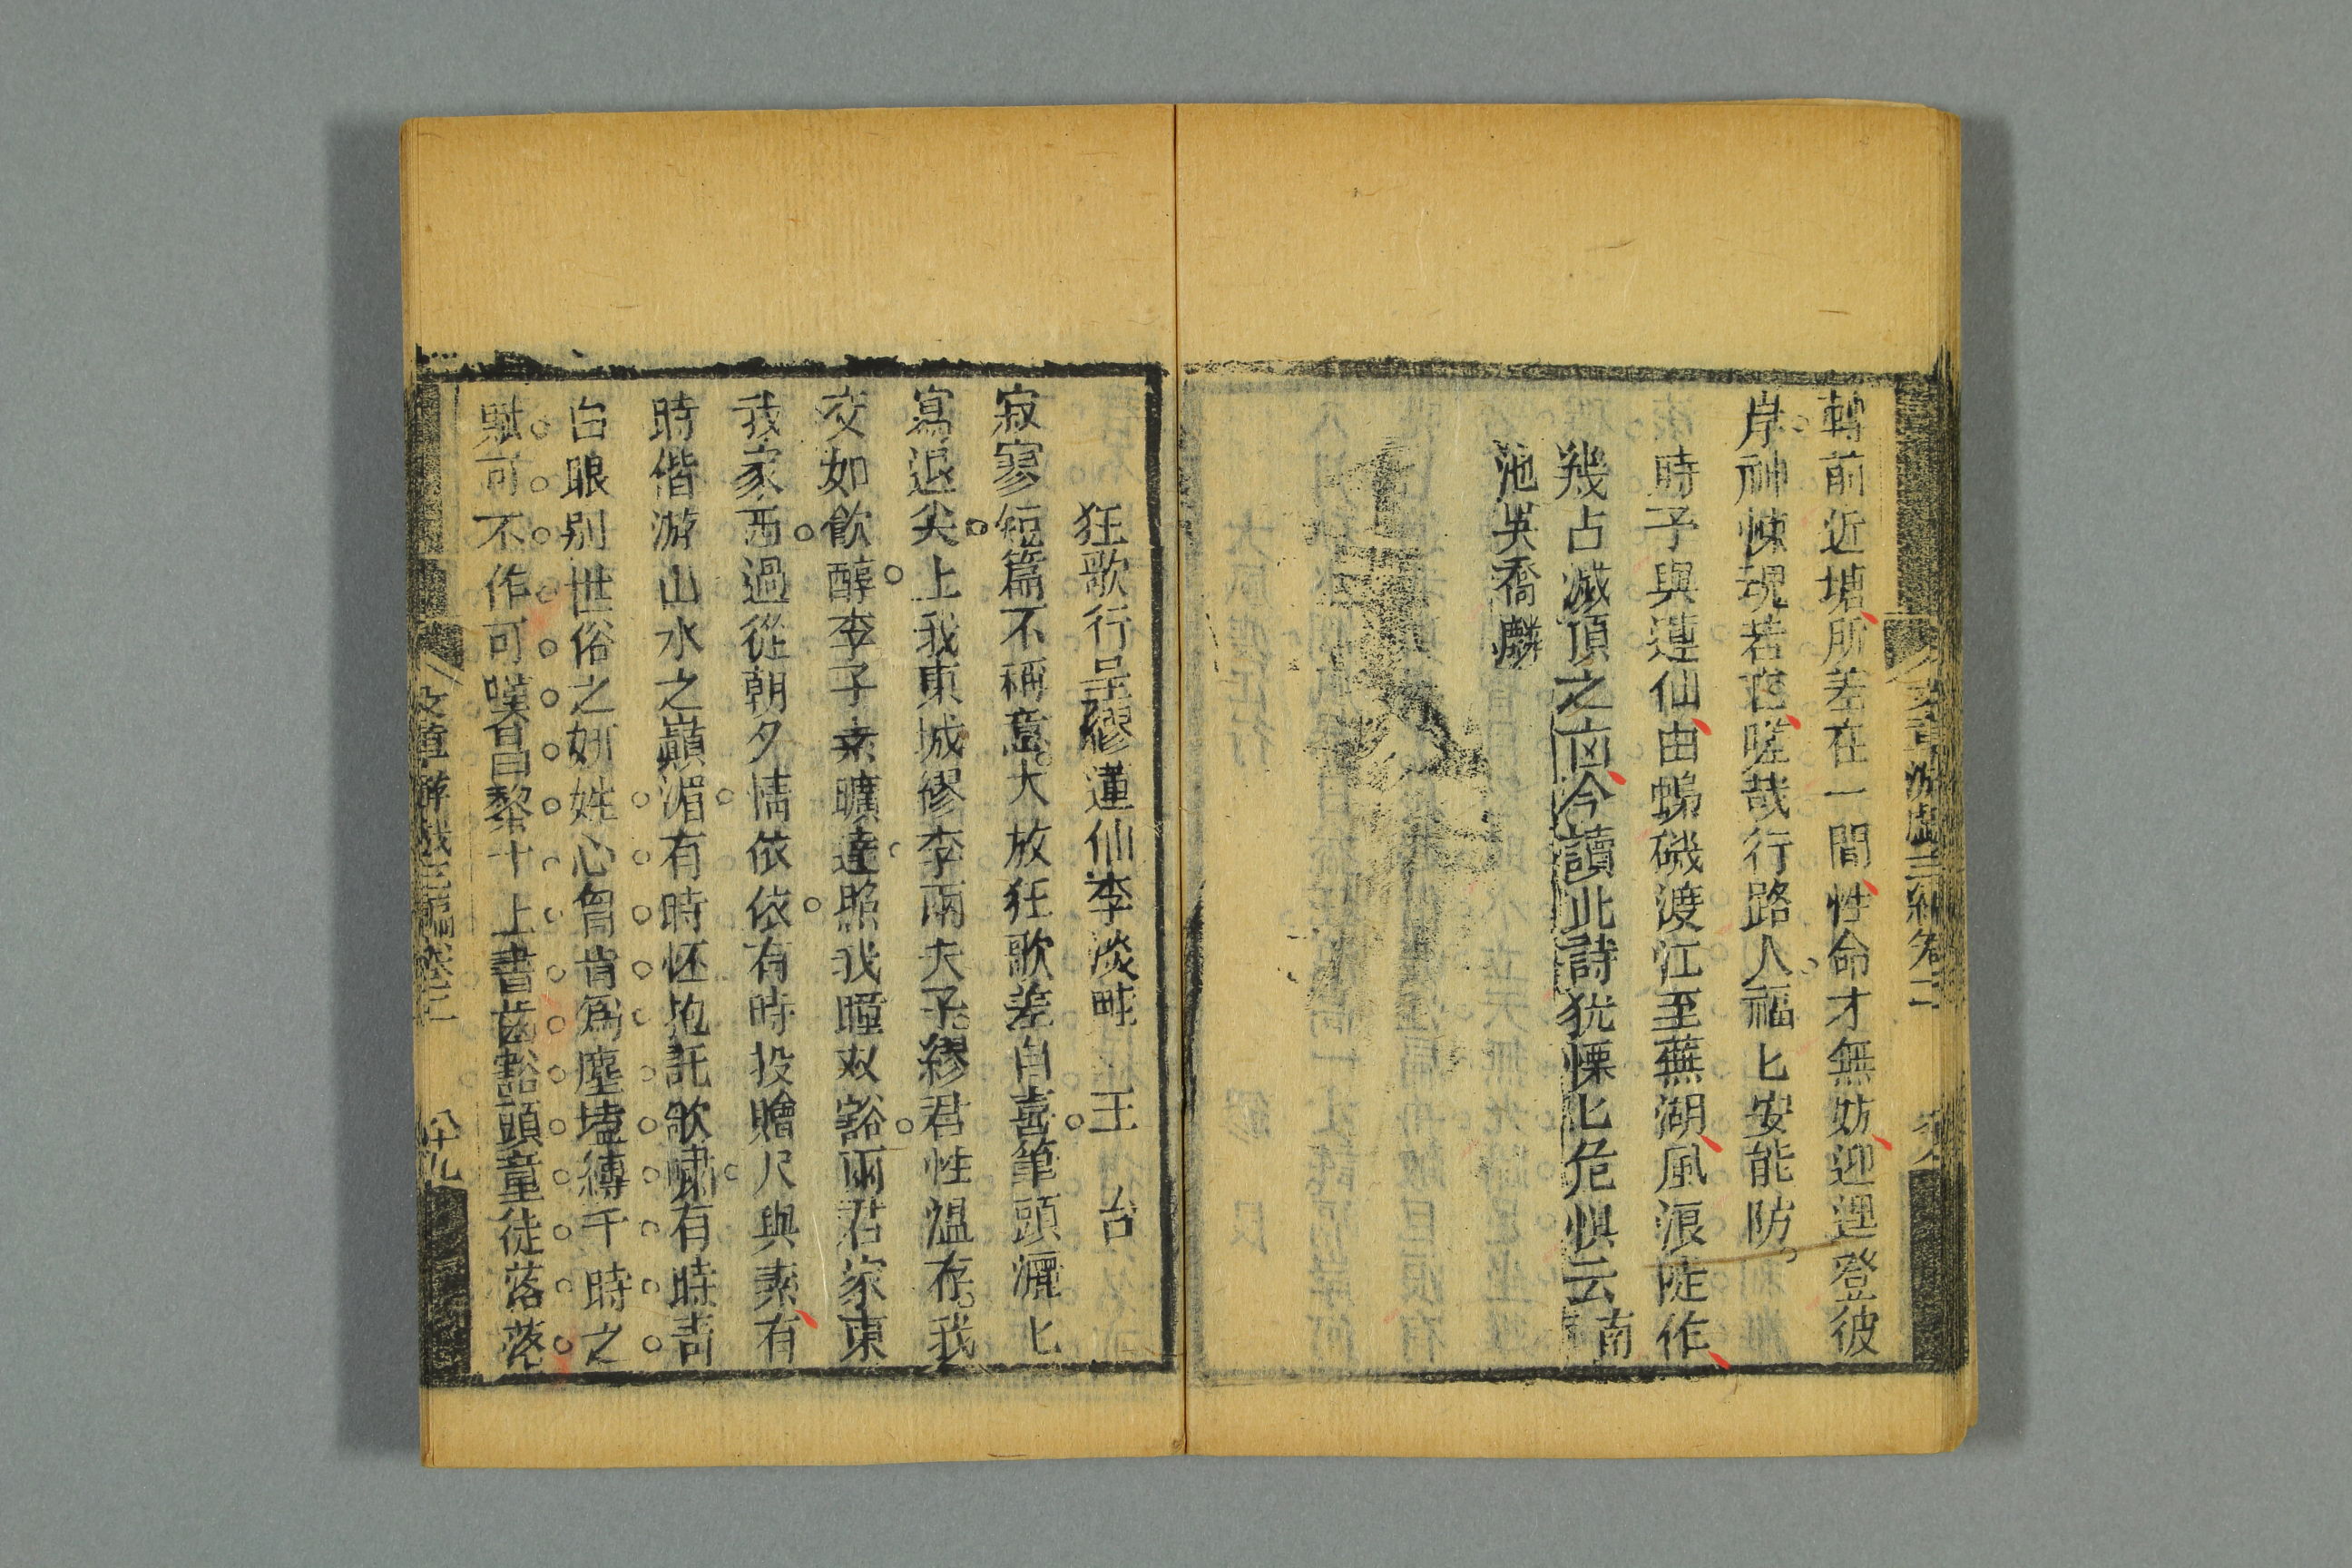 轉前近塘所差在一間性命才無妨迎遝登彼
岸神悚魂若
嗟哉行路人福匕安能防
時予與蓮仙由蟂磯渡江至蕪湖風浪陡作
幾占滅頂之凶今讀此詩猶慄匕危惧云南
池吳喬麟
狂歌行呈繆蓮仙李淡畦 王 台
寂寥短篇不稱意大放狂歌差自喜筆頭灑匕
寫退尖上我東城繆李兩夫子繆君性溫存我
交如飲醇李子幸曠達照我瞳双豁兩君家東
我家西過從朝夕情依依有時投贈尺與素有
時偕游山水之巔湄有時怀抱託歌嘯有時青
白眼別世俗之妍媸心胷肯為塵壒縛千時之
賦可不作可嘆昔昌黎十上書齒豁頭童徒落落
文章游戲三編卷二
十九